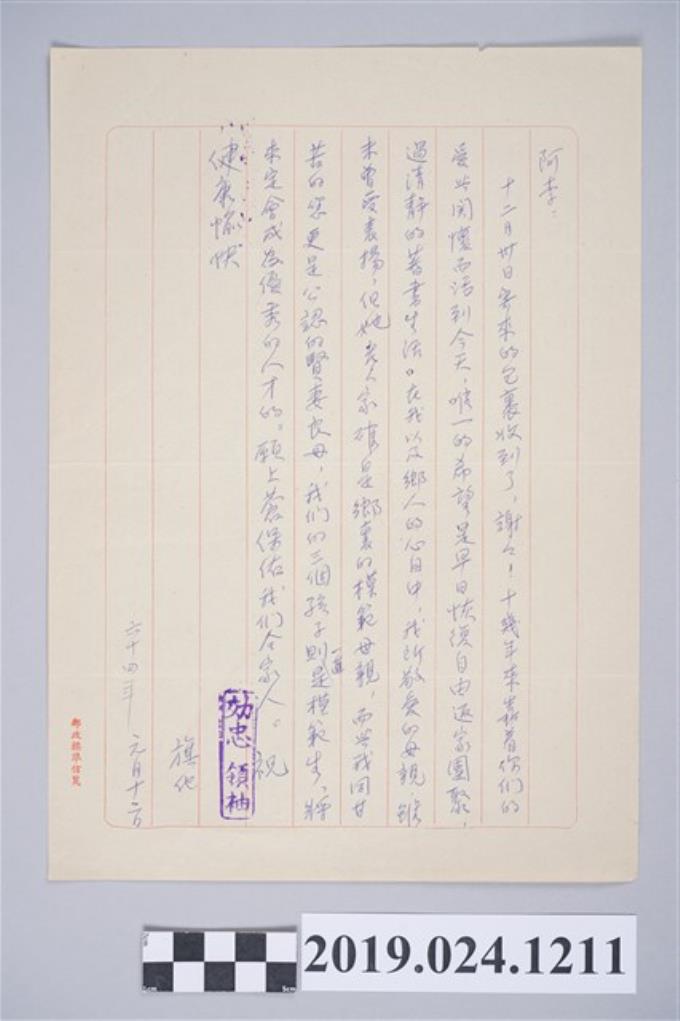 阿李：
十二月卅日寄來的包裹收到了，謝々！十幾年來靠著你们的
愛与関懷而活到今天，唯一的希望是早日恢復自由返家團聚，
過清静的著書生活。在我以及鄉人的心目中，我所敬愛的母親雖
未曾受表揚，但她老人家確是鄉裏的模範母親，而与我同甘
苦的您更是公認的賢妻良母，我们的三個孩子則一直是模範生，將
來定會成為優秀的人才的。願上蒼保佑我们全家人。祝
健康愉快
旗化
六十四年元月十二日
効忠領袖
郵政標準信箋
2019.024.1211